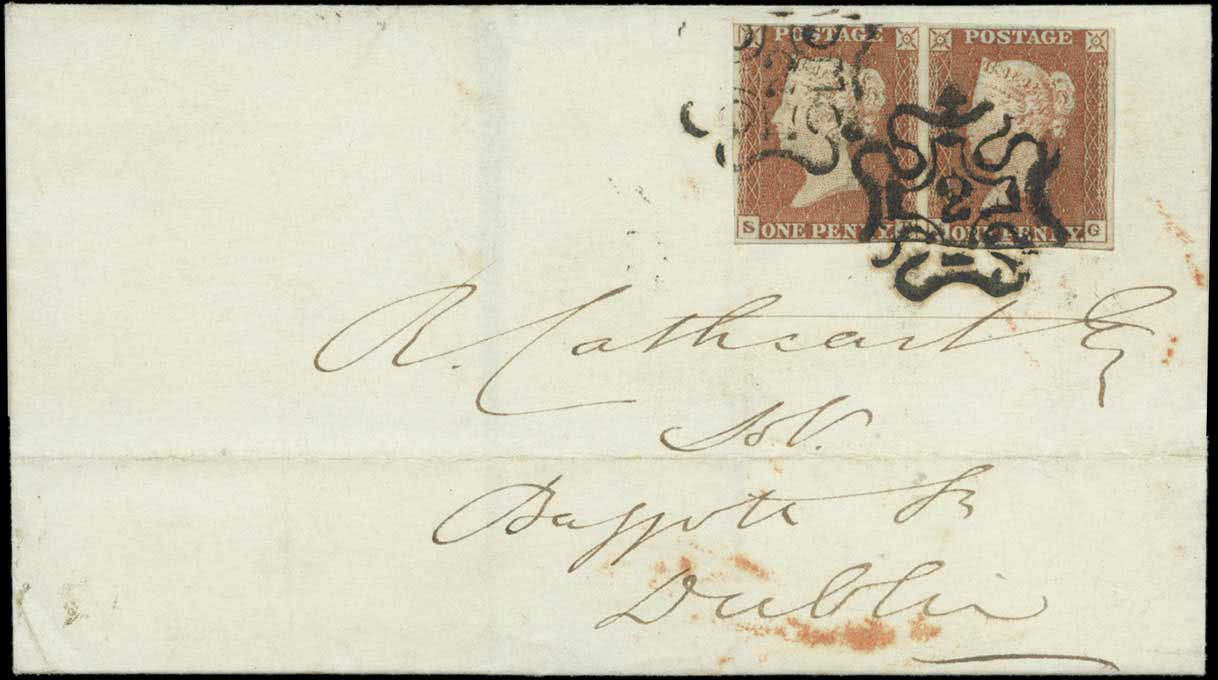 POSTAGE POSTAGE
S ONE PENNY ONE PENNY G
2
R. Cathcart Esq
Sol.
Baggote St
Dublin